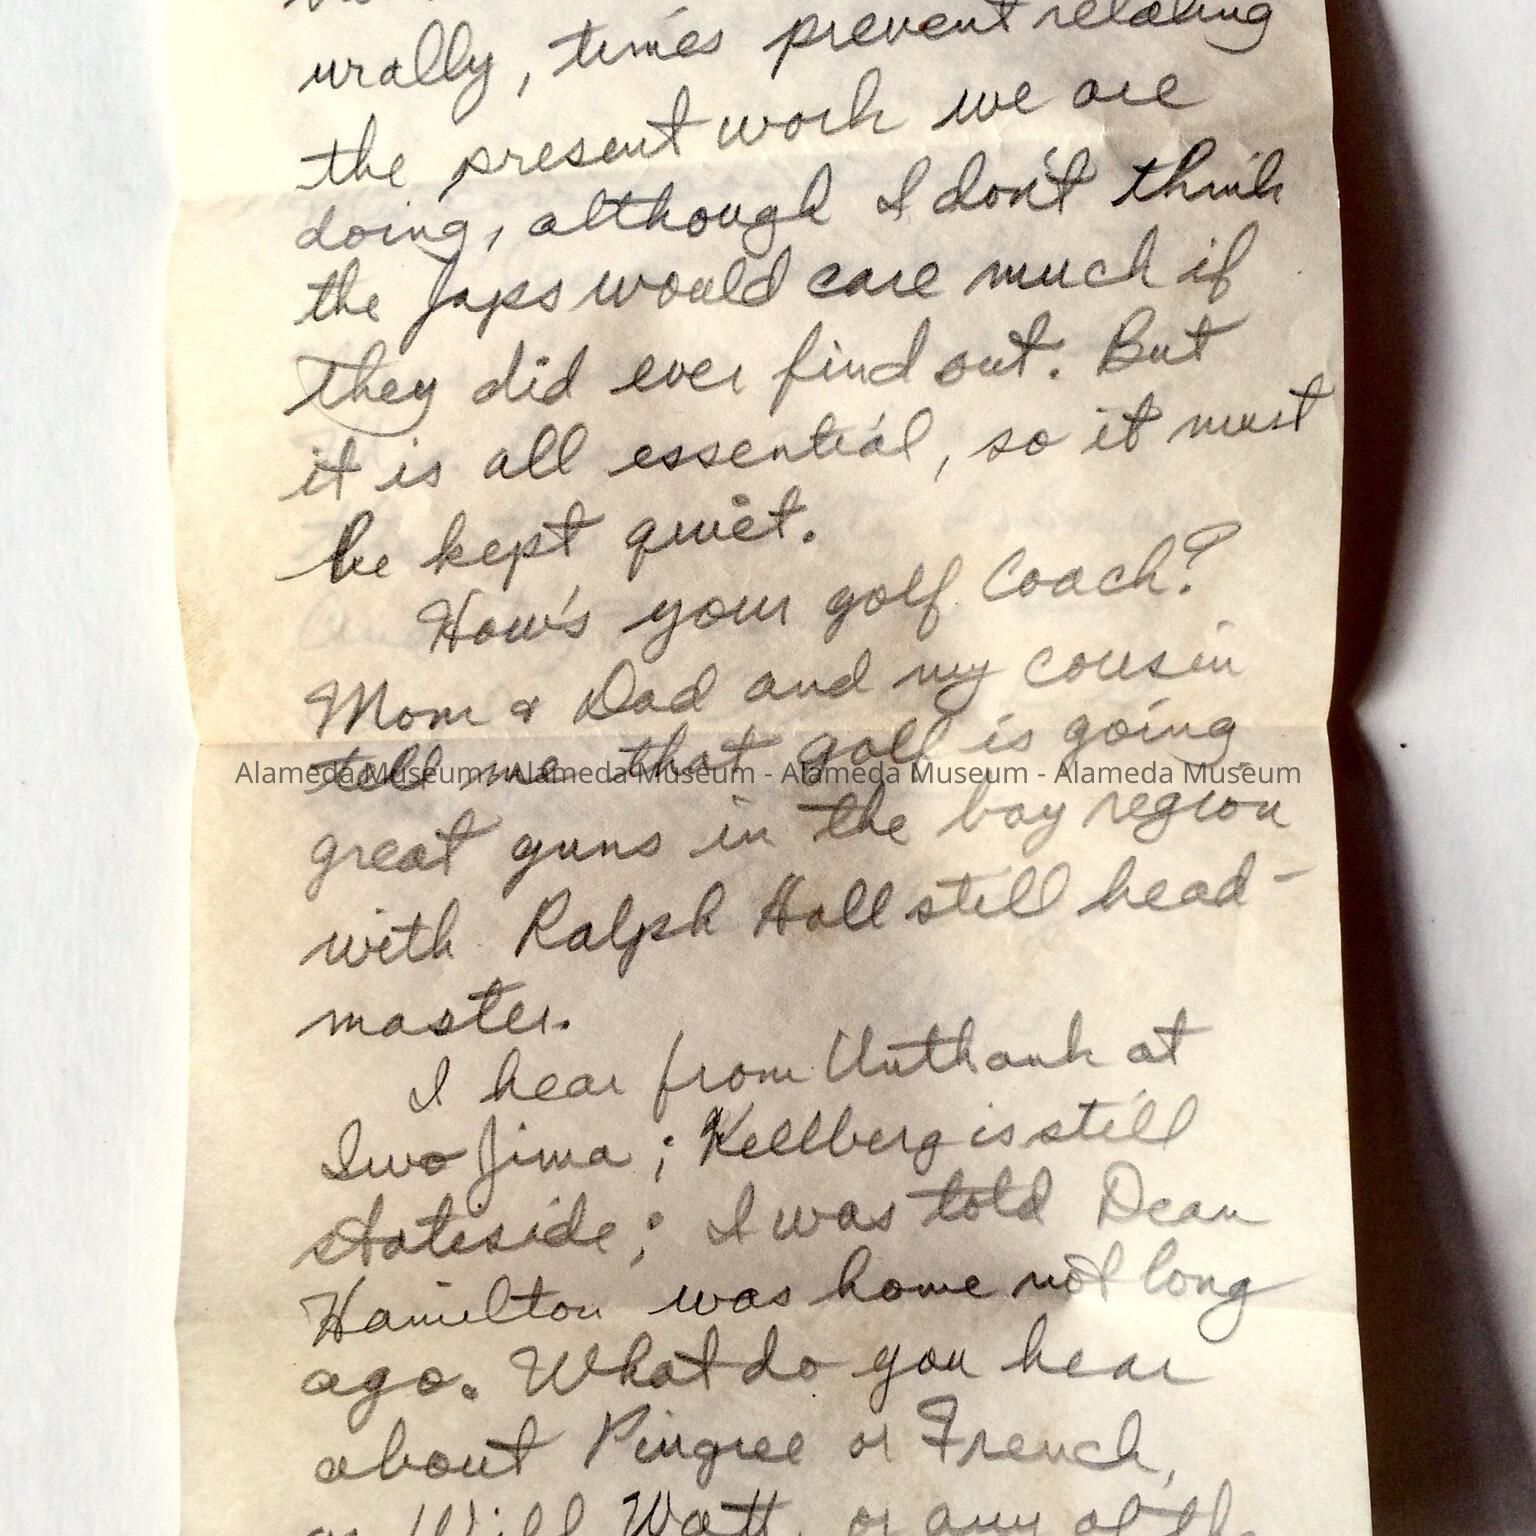 urally, times prevent relating
the present work we are
doing, although I don't think
the Japs would care much if
they did ever find out. But
it is all essential, so it must
be kept quiet.
How's your golf coach?
Mom & Dad and my cousin
tell me that golf is going
Alameda Museum - Alameda Museum - Alameda Museum - Alameda Museum
great guns in the bay region
with Ralph Hall still head-
master.
I hear from Unthank at
Iwo Jima; Kellberg is still
stateside; I was told Dean
Hamilton was home not long
ago. What do you hear
about Pingree or French,
or Will Watt, or any of the